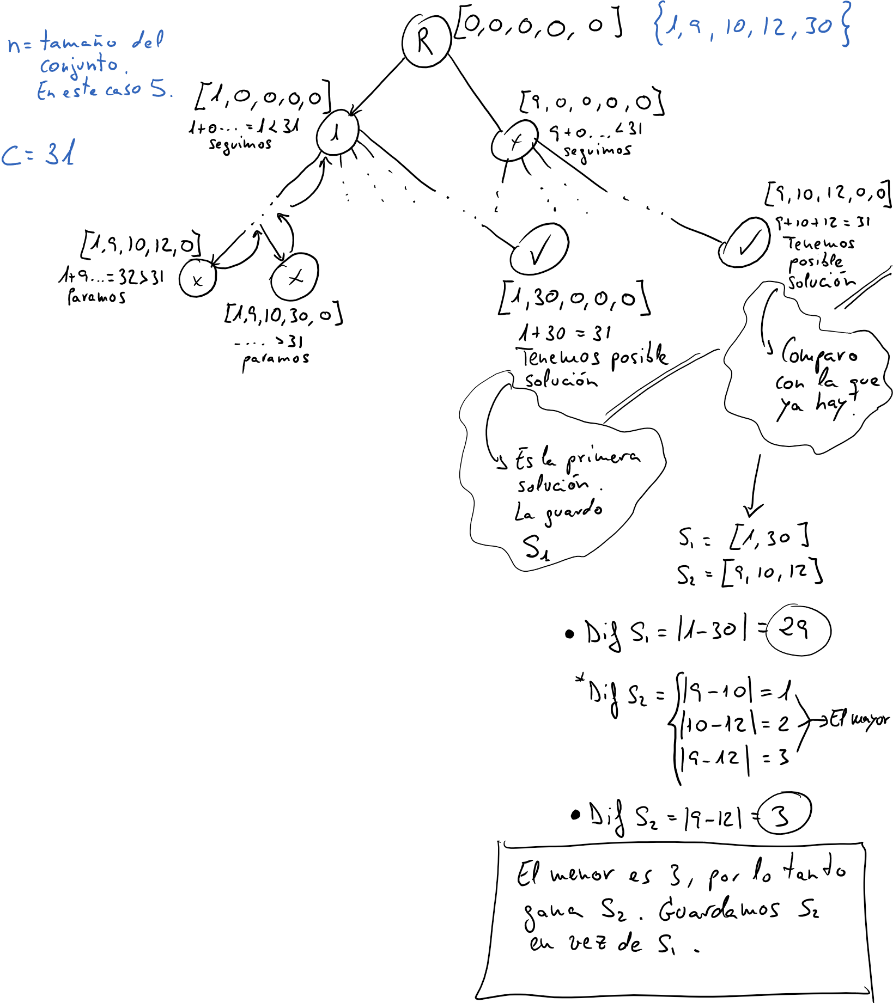 n= tamaño del
conjunto.
En este caso 5.
C = 31
R
[0,0,0,0,0]
{1,9,10,12,30}
[1,0,0,0,0]
1+0....=1<31
seguimos
1
[9,0,0,0,0]
9+0...<31
seguimos
x
[1,9,10,12,0]
1+9...=32>31
Paramos
x
x
[1,9,10,30,0]
-....>31
paramos
✓
[1,30,0,0,0]
1+30 = 31
Tenemos posible
solución
✓
[9,10,12,0,0]
9+10+12 = 31
Tenemos
posible
solución
Es la primera
solución.
La guardo
S1
Comparo
con la que
ya hay!
S1 = [1,30]
S2 = [9,10,12]
• Dif S1 = |1-30| = 29
* Dif S2 = { |9-10| = 1
|10-12| = 2
|9-12| = 3
→ El mayor
• Dif S2 = |9-12| = 3
El menor es 3, por lo tanto
gana S2. Guardamos S2
en vez de S1.